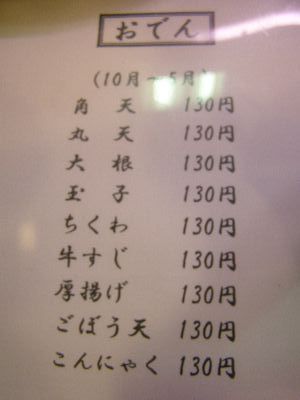 おでん
(10月～5月)
角天 130円
丸天 130円
大根 130円
玉子 130円
ちくわ 130円
牛すじ 130円
厚揚げ 130円
ごぼう天 130円
こんにゃく 130円